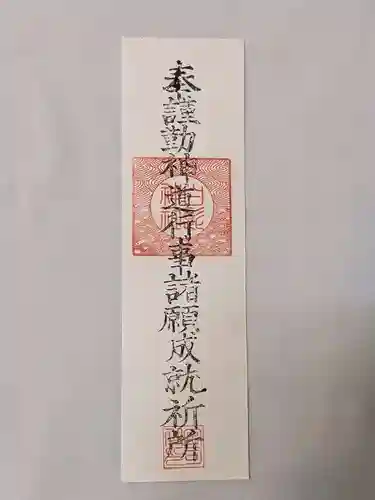 奉謹勤神道行事諸願成就祈所